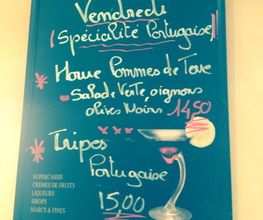 Vendredi
(Spécialité Portugaise)
Morue Pommes de Terre
Salade Verte, oignons
olives Noires 14,50
Tripes
Portugaise
15,00
SUPERCASSIS
CRÈMES DE FRUITS
LIQUEURS
SIROPS
MARCS & FINES